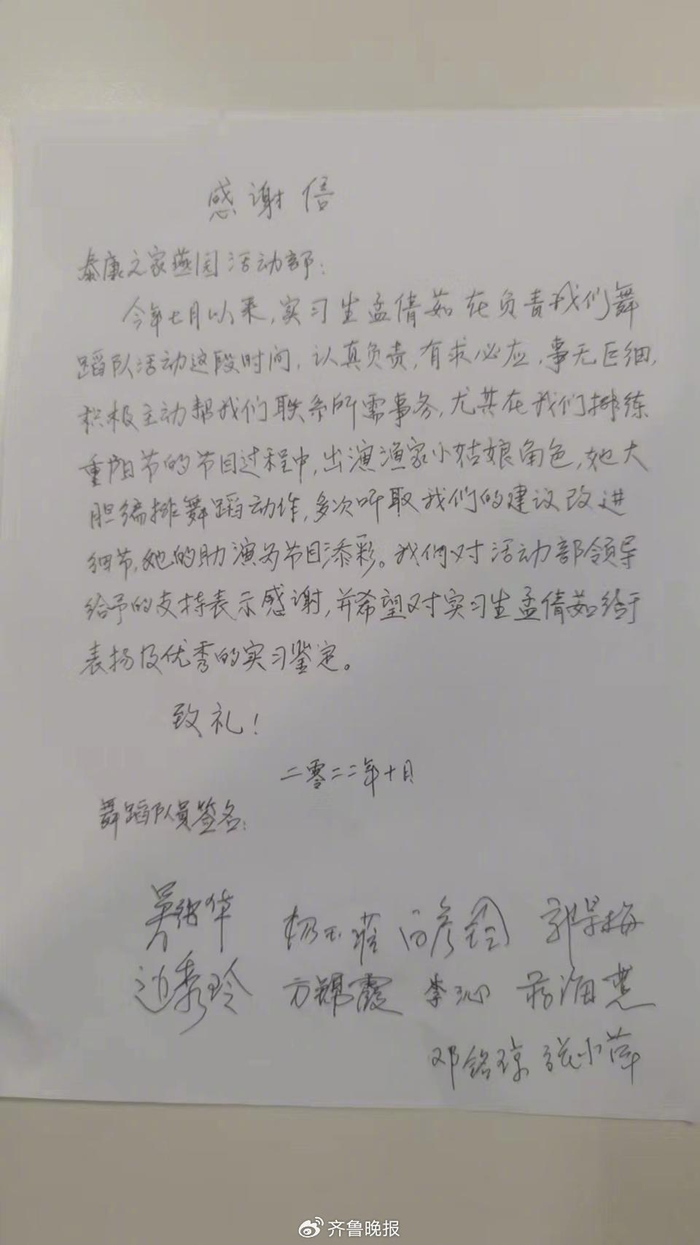 感谢信
泰康之家燕园活动部:
今年七月以来,实习生孟倩茹在负责我们舞
蹈队活动这段时间,认真负责,有求必应,事无巨细,
积极主动帮我们联系所需事务,尤其在我们排练
重阳节的节目过程中,出演渔家小姑娘角色,她大
胆编排舞蹈动作,多次听取我们的建议改进
细节,她的助演为节目添彩。我们对活动部领导
给予的支持表示感谢,并希望对实习生孟倩茹给于
表扬及优秀的实习鉴定。
致礼!
二零二二年十月
舞蹈队员签名:
郭景梅
边秀玲 方锦霞 李沁 蒋海慧
邓铭琼 张小萍
齐鲁晚报